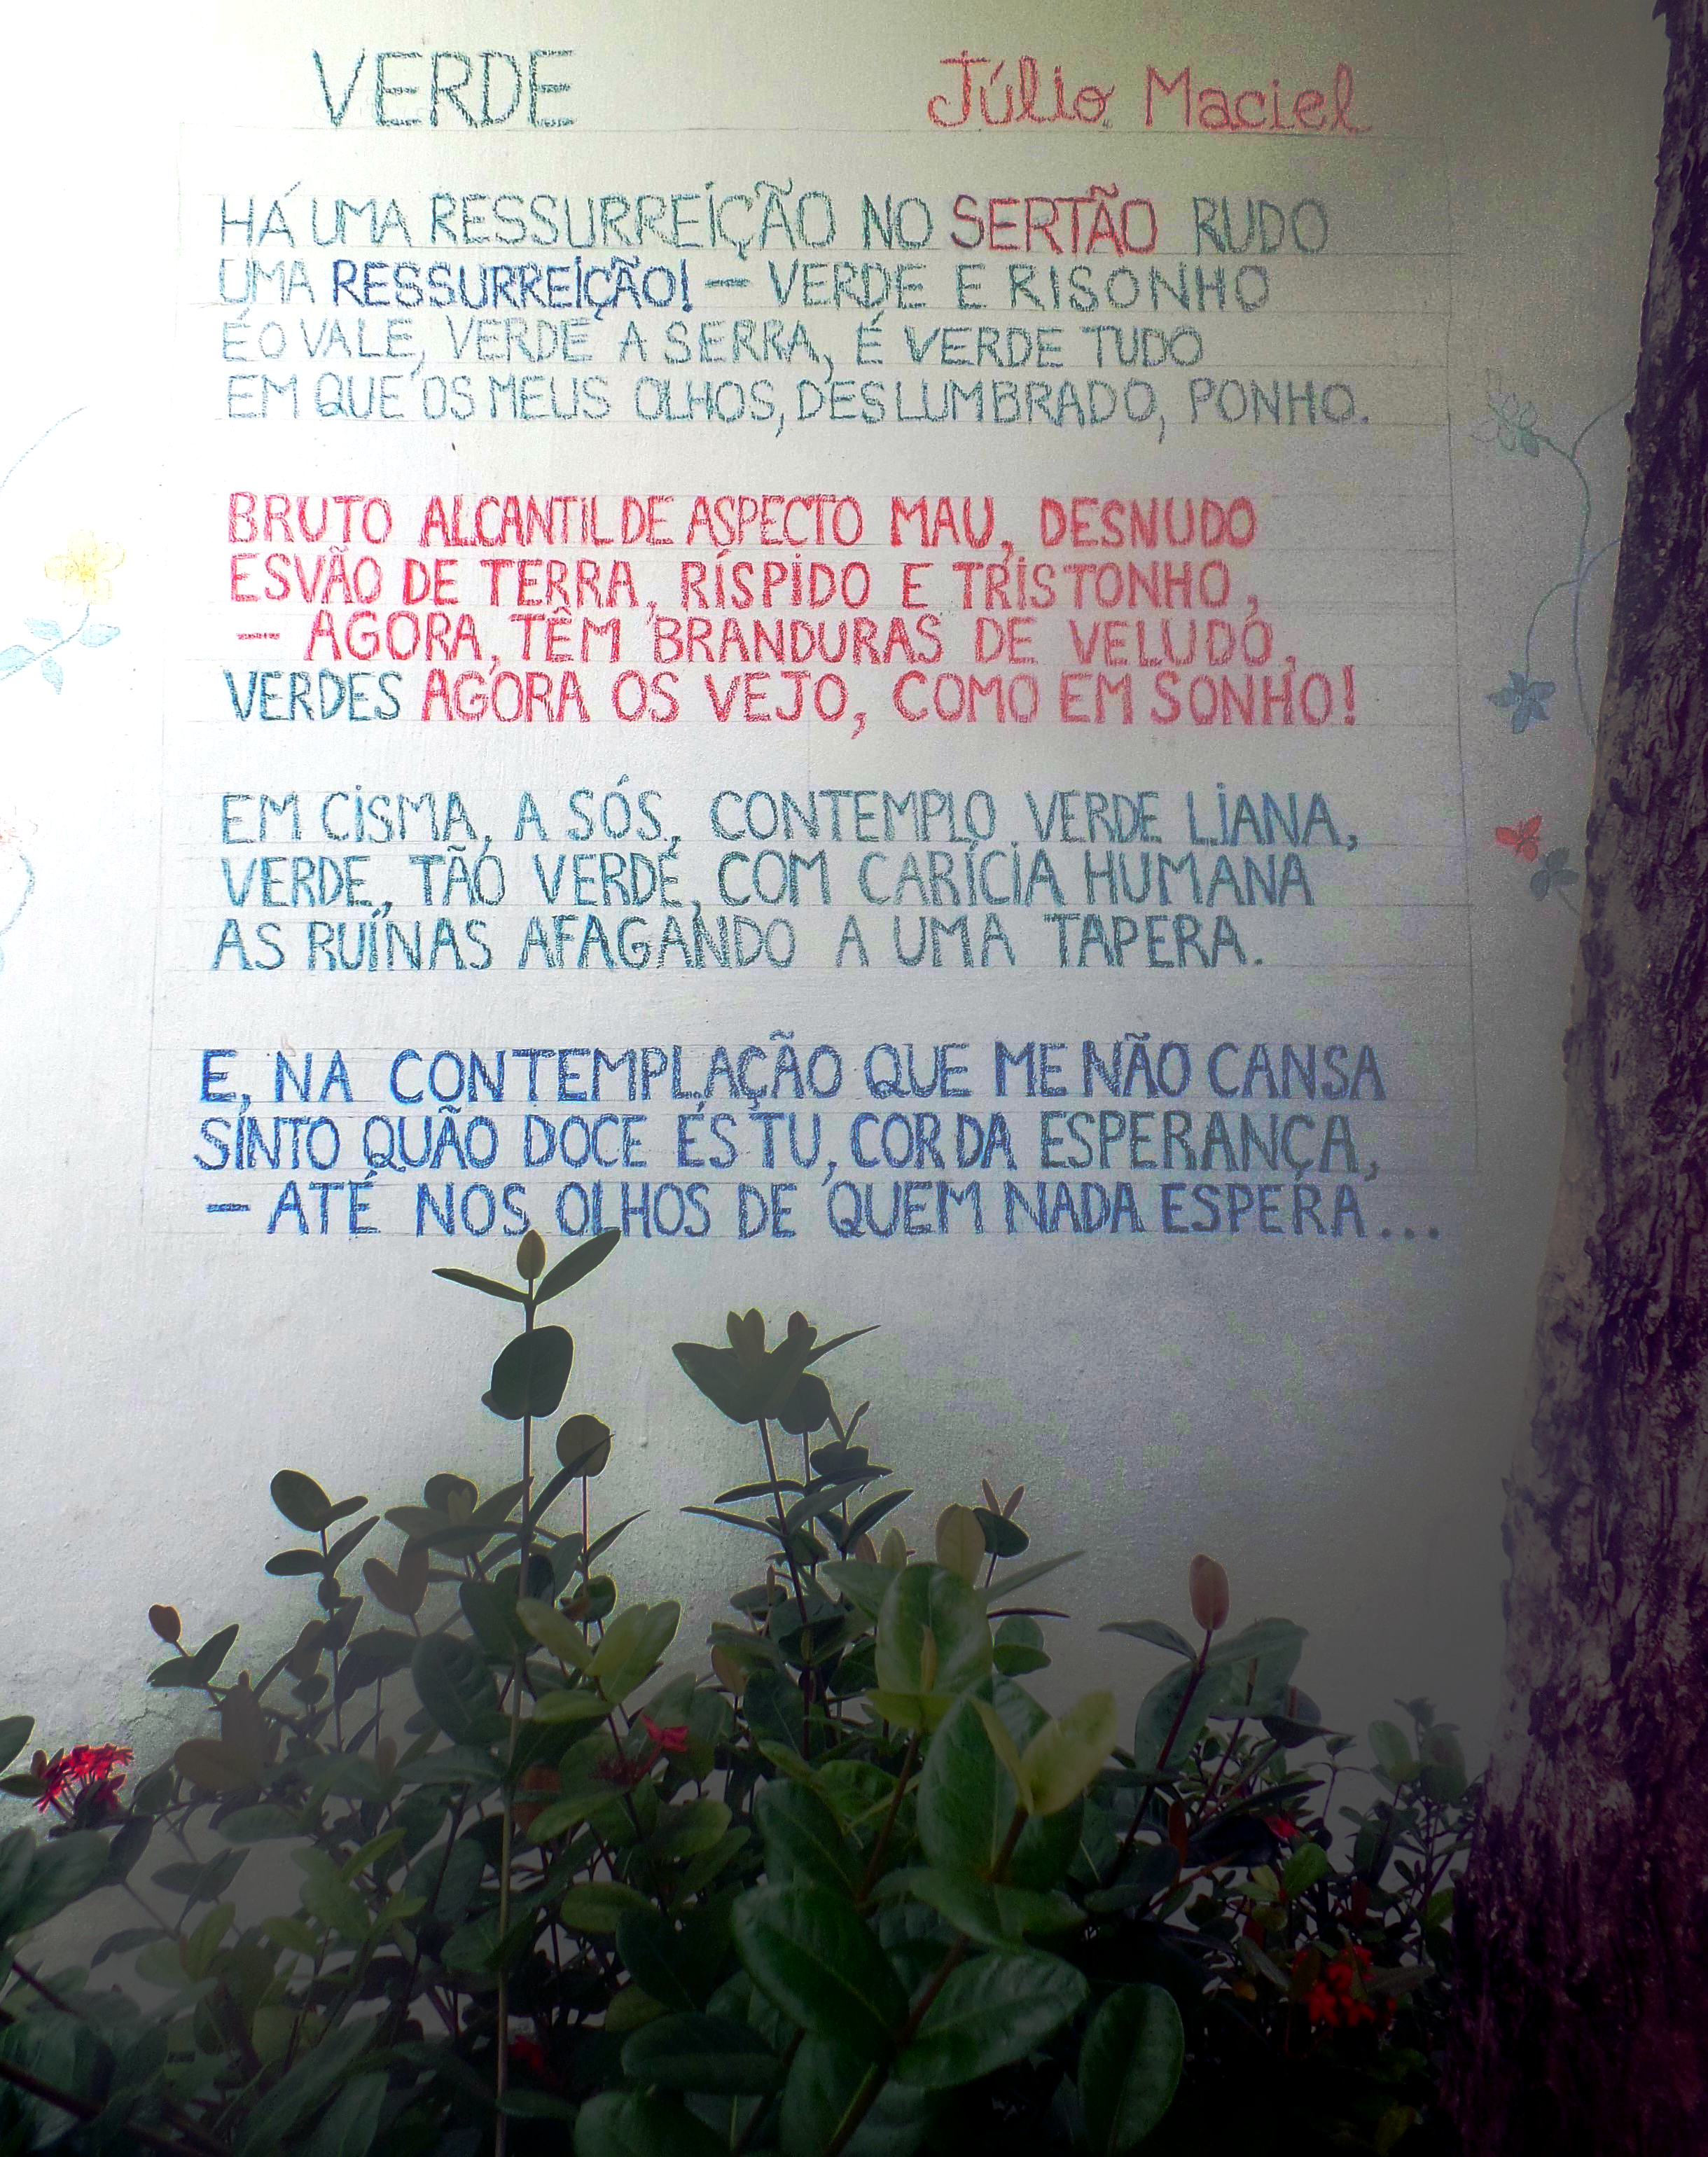 VERDE
Júlio Maciel
HÁ UMA RESSURREIÇÃO NO SERTÃO RUDO
UMA RESSURREIÇÃO! — VERDE E RISONHO
É O VALE, VERDE A SERRA, É VERDE TUDO
EM QUE OS MEUS OLHOS, DESLUMBRADO, PONHO.
BRUTO ALCANTIL DE ASPECTO MAU, DESNUDO
ESVÃO DE TERRA, RÍSPIDO E TRISTONHO,
— AGORA, TÊM BRANDURAS DE VELUDO,
VERDES AGORA OS VEJO, COMO EM SONHO!
EM CISMA, A SÓS, CONTEMPLO VERDE LIANA,
VERDE, TÃO VERDE, COM CARÍCIA HUMANA
AS RUÍNAS AFAGANDO A UMA TAPERA.
E, NA CONTEMPLAÇÃO QUE ME NÃO CANSA
SINTO QUÃO DOCE ÉS TU, COR DA ESPERANÇA,
— ATÉ NOS OLHOS DE QUEM NADA ESPERA...